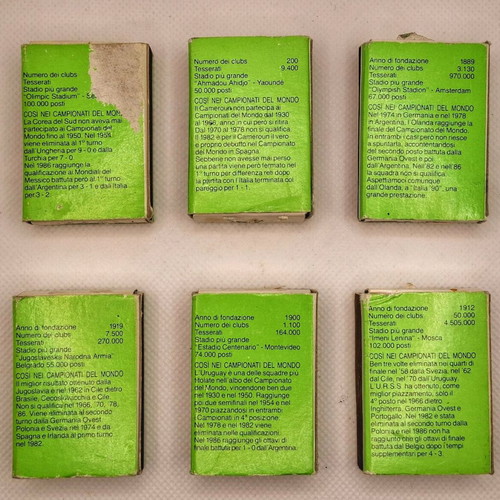 Numero dei clubs
Tesserati
Stadio più grande
"Olimpic Stadium" -
100.000 posti
COSÌ NEI CAMPIONATI DEL MONDO
La Corea del Sud non aveva mai
partecipato ai Campionati del
Mondo fino al 1950. Nel 1954
viene eliminata al 1° turno
dall'Ungheria per 9 - 0 e dalla
Turchia per 7 - 0.
Nel 1986 raggiunge la
qualificazione ai Mondiali del
Messico battuta però al 1° turno
dall'Argentina per 3 - 1 e dall'Italia
per 3 - 2.
Numero dei clubs 200
Tesserati 9.400
Stadio più grande
"Ahmadou Ahidjo" - Yaoundé
50.000 posti
COSÌ NEI CAMPIONATI DEL MONDO
Il Camerun non partecipa ai
Campionati del Mondo dal 1930
al 1966, anno in cui però si ritira.
Dal 1970 al 1978 non si qualifica.
Il 1982 è per il Camerun il vero
e proprio debutto nel Campionato
del Mondo in Spagna.
Sebbene non avesse mai perso
una partita viene però fermato nel
1° turno per differenza reti dopo
la partita con l'Italia terminata col
pareggio per 1 - 1.
Anno di fondazione 1889
Numero dei clubs 3.130
Tesserati 970.000
Stadio più grande
"Olympish Stadion" - Amsterdam
67.000 posti
COSÌ NEI CAMPIONATI DEL MONDO
Nel 1974 in Germania e nel 1978
in Argentina, l'Olanda raggiunge la
finale del Campionato del Mondo.
In entrambi i casi però non riesce
a spuntarla, accontentandosi
del secondo posto battuta dalla
Germania Ovest e poi
dall'Argentina. Nel 82 e nel 86
la squadra non si qualifica.
Aspettiamoci comunque
dall'Olanda, a "Italia '90", una
grande prestazione.
Anno di fondazione 1919
Numero dei clubs 7.500
Tesserati 270.000
Stadio più grande
"Jugoslawenska Narodna Armia"
Belgrado 55.000 posti
COSÌ NEI CAMPIONATI DEL MONDO
Il miglior risultato ottenuto dalla
Jugoslavia è nel 1962 in Cile dietro
Brasile, Cecoslovacchia e Cile.
Non si qualifica nel 1966, '70, '78,
'86. Viene eliminata al secondo
turno dalla Germania Ovest,
Polonia e Svezia nel 1974 e da
Spagna e Irlanda al primo turno
nel 1982.
Anno di fondazione 1900
Numero dei clubs 1.100
Tesserati 164.000
Stadio più grande
"Estadio Centenario" - Montevideo
74.000 posti
COSÌ NEI CAMPIONATI DEL MONDO
L'Uruguay è una delle squadre più
titolate nell'albo del Campionato
del Mondo, vincendone ben due
nel 1930 e nel 1950. Raggiunge
poi due semifinali nel 1954 e nel
1970 piazzandosi in entrambi
i Campionati in 4ª posizione.
Nel 1978 e nel 1982 viene
eliminata nelle qualificazioni.
Nel 1986 raggiunge gli ottavi di
finale battuta per 1 - 0 dall'Argentina.
Anno di fondazione 1912
Numero dei clubs 50.000
Tesserati 4.505.000
Stadio più grande
"Imeni Lenina" - Mosca
102.000 posti
COSÌ NEI CAMPIONATI DEL MONDO
Ben tre volte eliminata nei quarti di
finale nel '58 dalla Svezia, nel '62
dal Cile, nel '70 dall'Uruguay.
L'U.R.S.S. ha ottenuto, come
miglior piazzamento, solo il
4° posto nel 1966 dietro
Inghilterra, Germania Ovest e
Portogallo. Nel 1982 è stata
eliminata al secondo turno dalla
Polonia e nel 1986 non ha
raggiunto che gli ottavi di finale
battuta dal Belgio dopo i tempi
supplementari per 4 - 3.